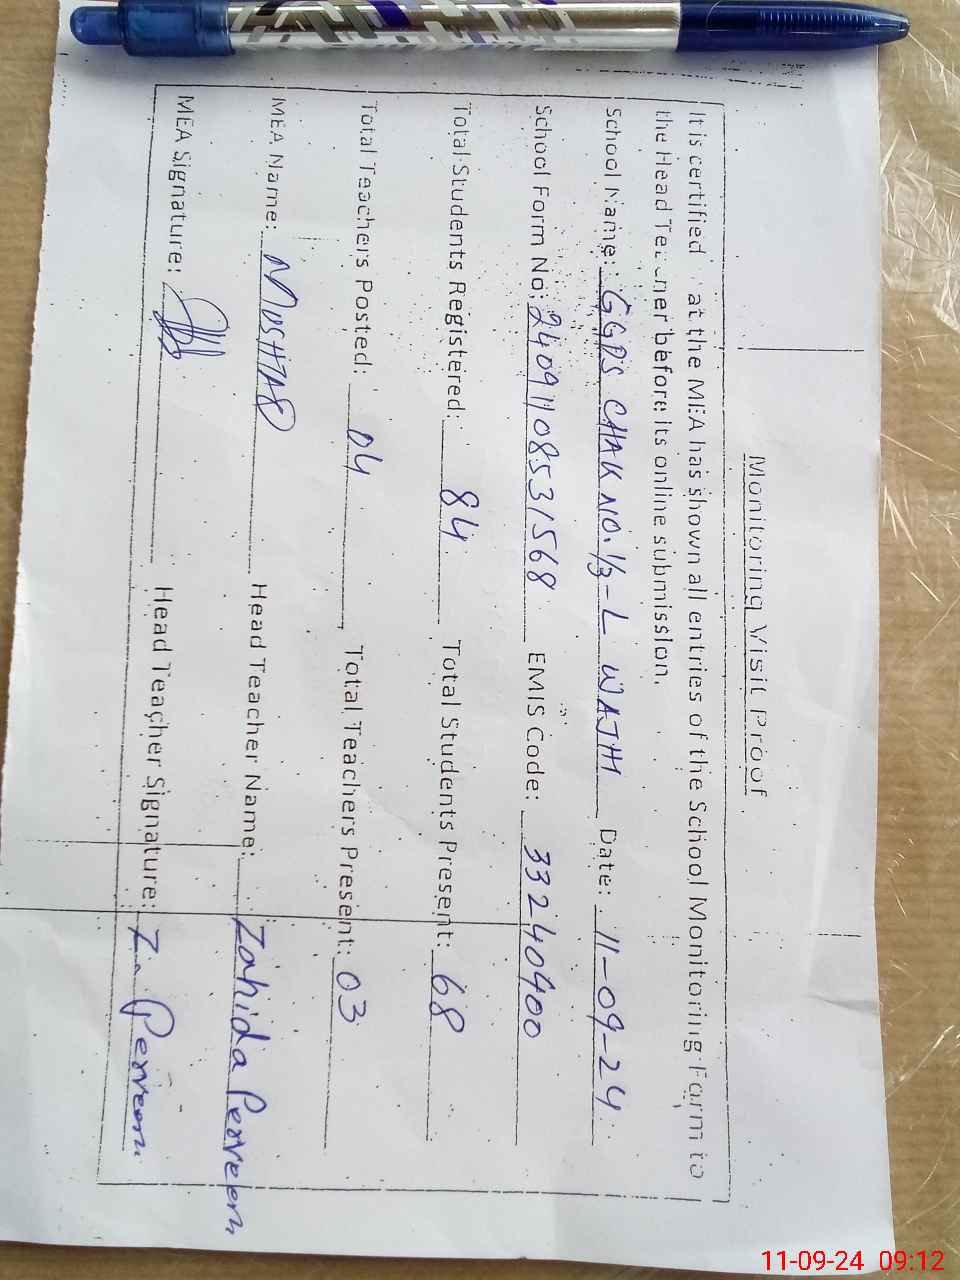 Monitoring Visit Proof
It is certified at the MEA has shown all entries of the School Monitoring Form to
the Head Teacher before its online submission.
School Name: GGPS CHAK NO. 1/3-L WAJH Date: 11-09-24
School Form No: 24091108531568 EMIS Code: 33240400
Total Students Registered: 84 Total Students Present: 68
Total Teachers Posted: 04 Total Teachers Present: 03
MEA Name: MUSHTAQ Head Teacher Name: Zahida Perveen
MEA Signature: Head Teacher Signature: Z. Perveen
11-09-24 09:12